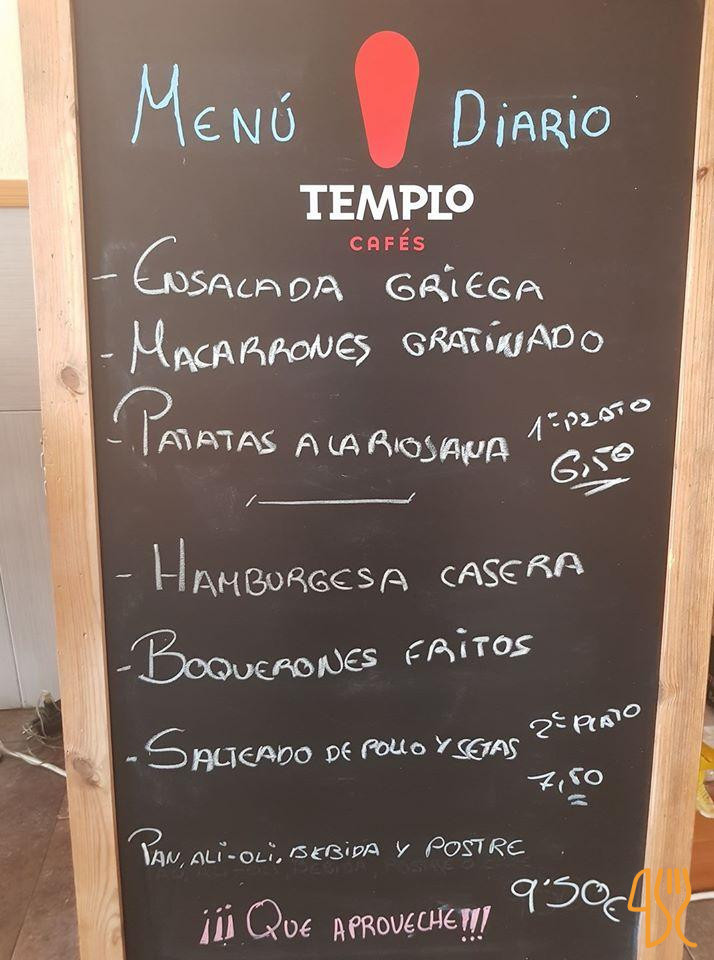 MENÚ DIARIO
TEMPLO
CAFÉS
- ENSALADA GRIEGA
- MACARRONES GRATINADO
- PATATAS A LA RIOJANA 1º PLATO
6,50
- HAMBURGESA CASERA
- BOQUERONES FRITOS
- SALTEADO DE POLLO Y SETAS 2º PLATO
7,50
PAN, ALI-OLI, BEBIDA Y POSTRE
9'50€
¡¡¡ QUE APROVECHE!!!